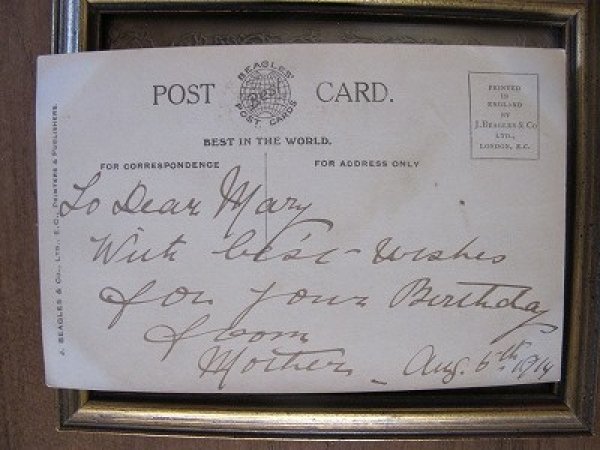 POST CARD.
BEAGLES' Best POST CARDS
BEST IN THE WORLD.
FOR CORRESPONDENCE FOR ADDRESS ONLY
PRINTED
IN
ENGLAND
BY
J. BEAGLES & CO
LTD.,
LONDON, E.C.
J. BEAGLES & CO., LTD., E.C., PRINTERS & PUBLISHERS.
To Dear Mary
With best wishes
for your Birthday
from
Mother _ Aug. 6th 1914